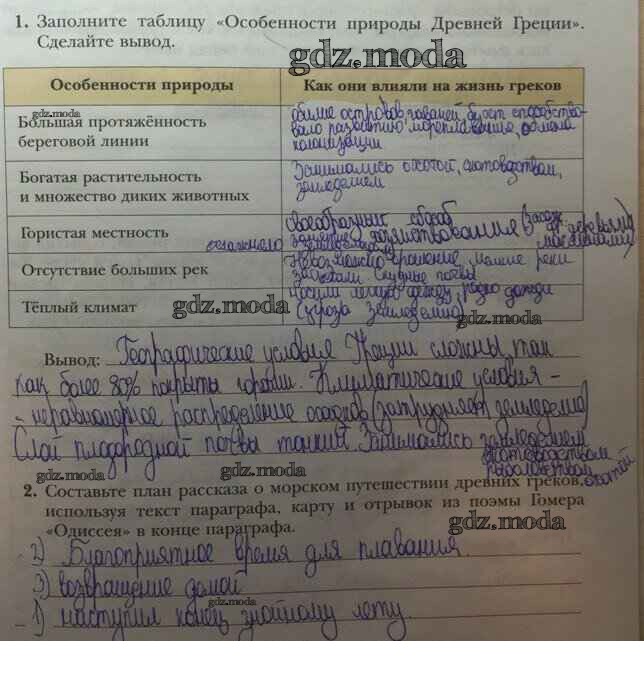 1. Заполните таблицу «Особенности природы Древней Греции».
Сделайте вывод.
gdz.moda
Особенности природы
Как они влияли на жизнь греков
gdz.moda
Большая протяжённость
береговой линии
обилие островов, гаваней будет способство-
вало развитию мореплавание, обмена
колонизации
Богатая растительность
и множество диких животных
Занимались охотой, скотоводством,
земледелием
Гористая местность
своеобразный способ
хозяйствования
занятие земледелием
осложнело
деревьями
маслинами)
Отсутствие больших рек
Невозможно орошение, мелкие реки
засыхали. Скудные почвы
Тёплый климат
gdz.moda
носили легкую одежду, редко дожди
(угроза земледелию)
Вывод: Географические условия Греции сложны, так
как более 80% покрыты горами. Климатические условия -
- неравномерное распределение осадков (затрудняет земледелие)
Слой плодородной почвы тонкий. Занимались земледелием
скотоводством
рыболовством, охотой
gdz.moda
gdz.moda
2. Составьте план рассказа о морском путешествии древних греков,
используя текст параграфа, карту и отрывок из поэмы Гомера
«Одиссея» в конце параграфа.
gdz.moda
- 2) Благоприятное время для плавания.
- 3) возвращение домой
gdz.moda
- 1) наступил конец знойному лету.